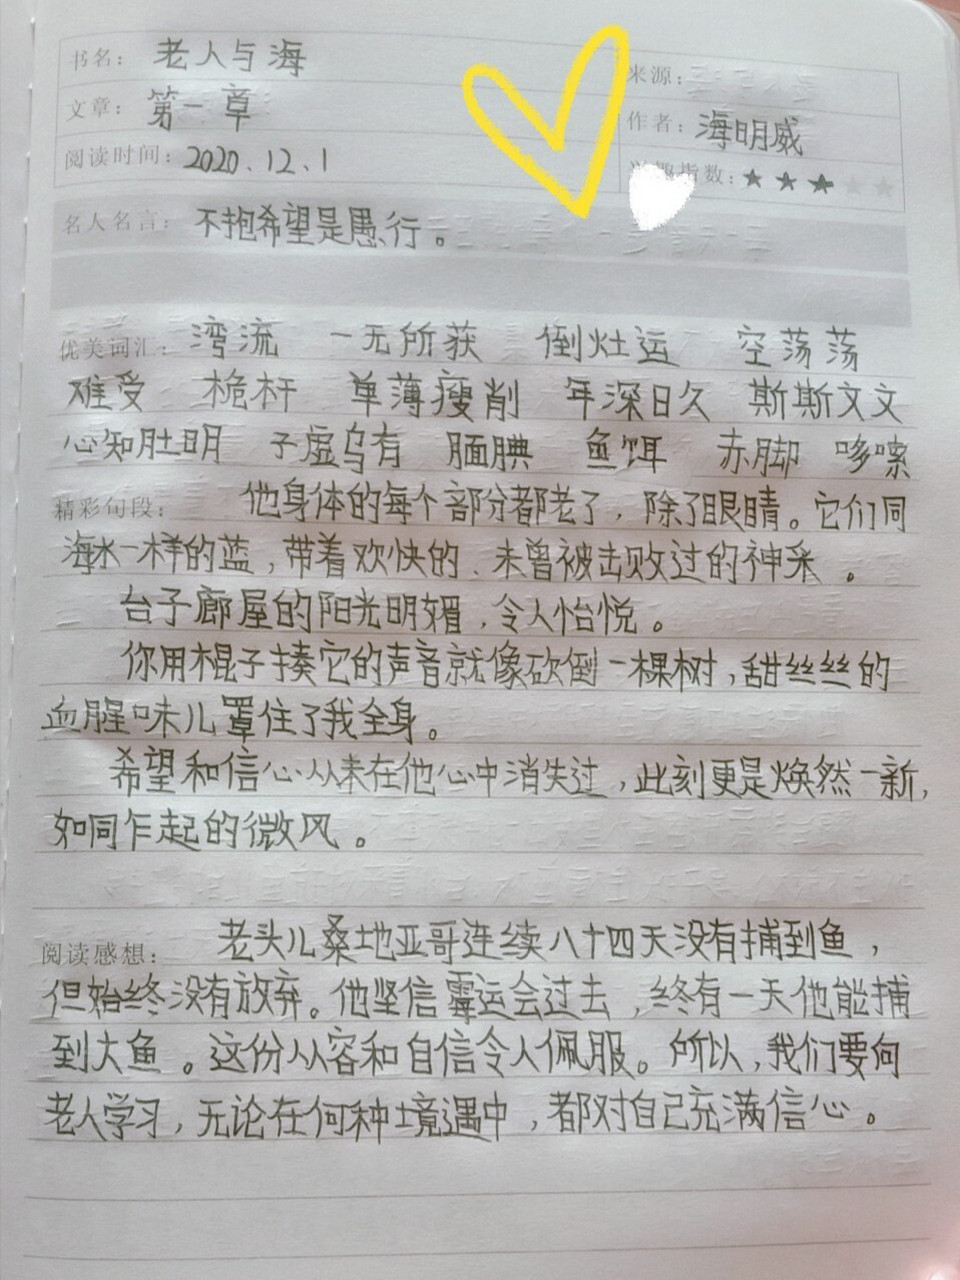 书名： 老人与海
来源：
文章： 第一章
作者： 海明威
阅读时间： 2020.12.1
指数：★★★★★
名人名言： 不抱希望是愚行。
优美词汇： 湾流 一无所获 倒灶运 空荡荡
难受 桅杆 单薄瘦削 年深日久 斯斯文文
心知肚明 子虚乌有 腼腆 鱼饵 赤脚 哆嗦
精彩句段： 他身体的每个部分都老了，除了眼睛。它们同
海水一样的蓝，带着欢快的、未曾被击败过的神采。
台子廊屋的阳光明媚，令人怡悦。
你用棍子揍它的声音就像砍倒一棵树，甜丝丝的
血腥味儿罩住了我全身。
希望和信心从未在他心中消失过，此刻更是焕然一新，
如同乍起的微风。
阅读感想： 老头儿桑地亚哥连续八十四天没有捕到鱼，
但始终没有放弃。他坚信霉运会过去，终有一天他能捕
到大鱼。这份从容和自信令人佩服。所以，我们要向
老人学习，无论在何种境遇中，都对自己充满信心。